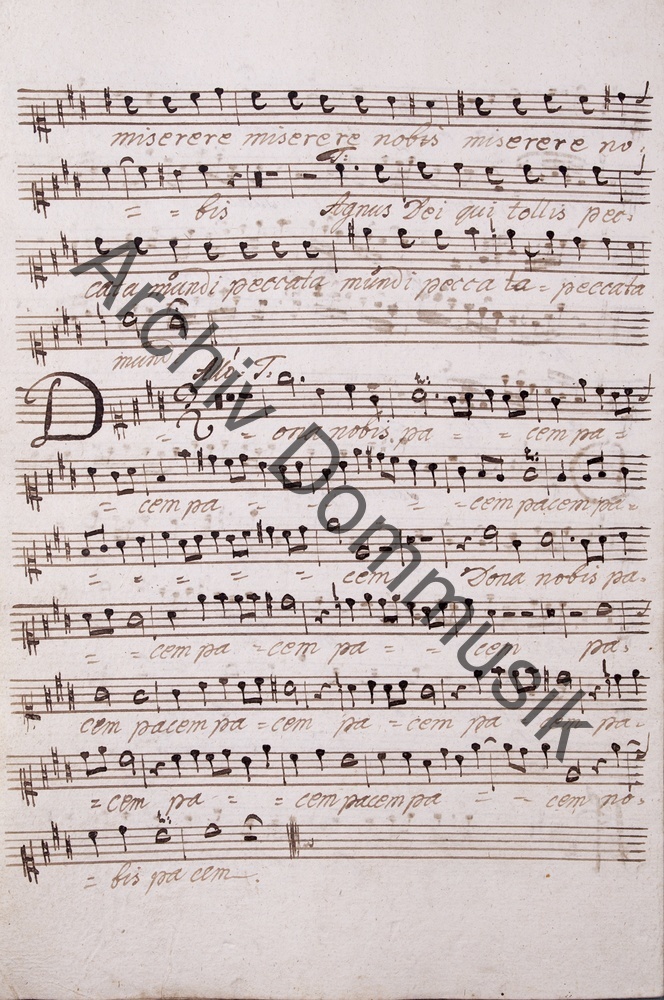 miserere miserere nobis miserere no,
= = bis T. Agnus Dei qui tollis pec,
cata mundi peccata mundi pecca ta = peccata
mundi
Allo: T.
D = = ona nobis pa = = cem pa =
= cem pa = = = cem pacem pa =
= = = = = cem Dona nobis pa,
= = cem pa = cem pa = = cem pa,
cem pacem pa = cem pa = cem pa = cem pa,
= cem pa = = cem pacem pa = = cem no,
= bis pa cem.
Archiv Dommusik